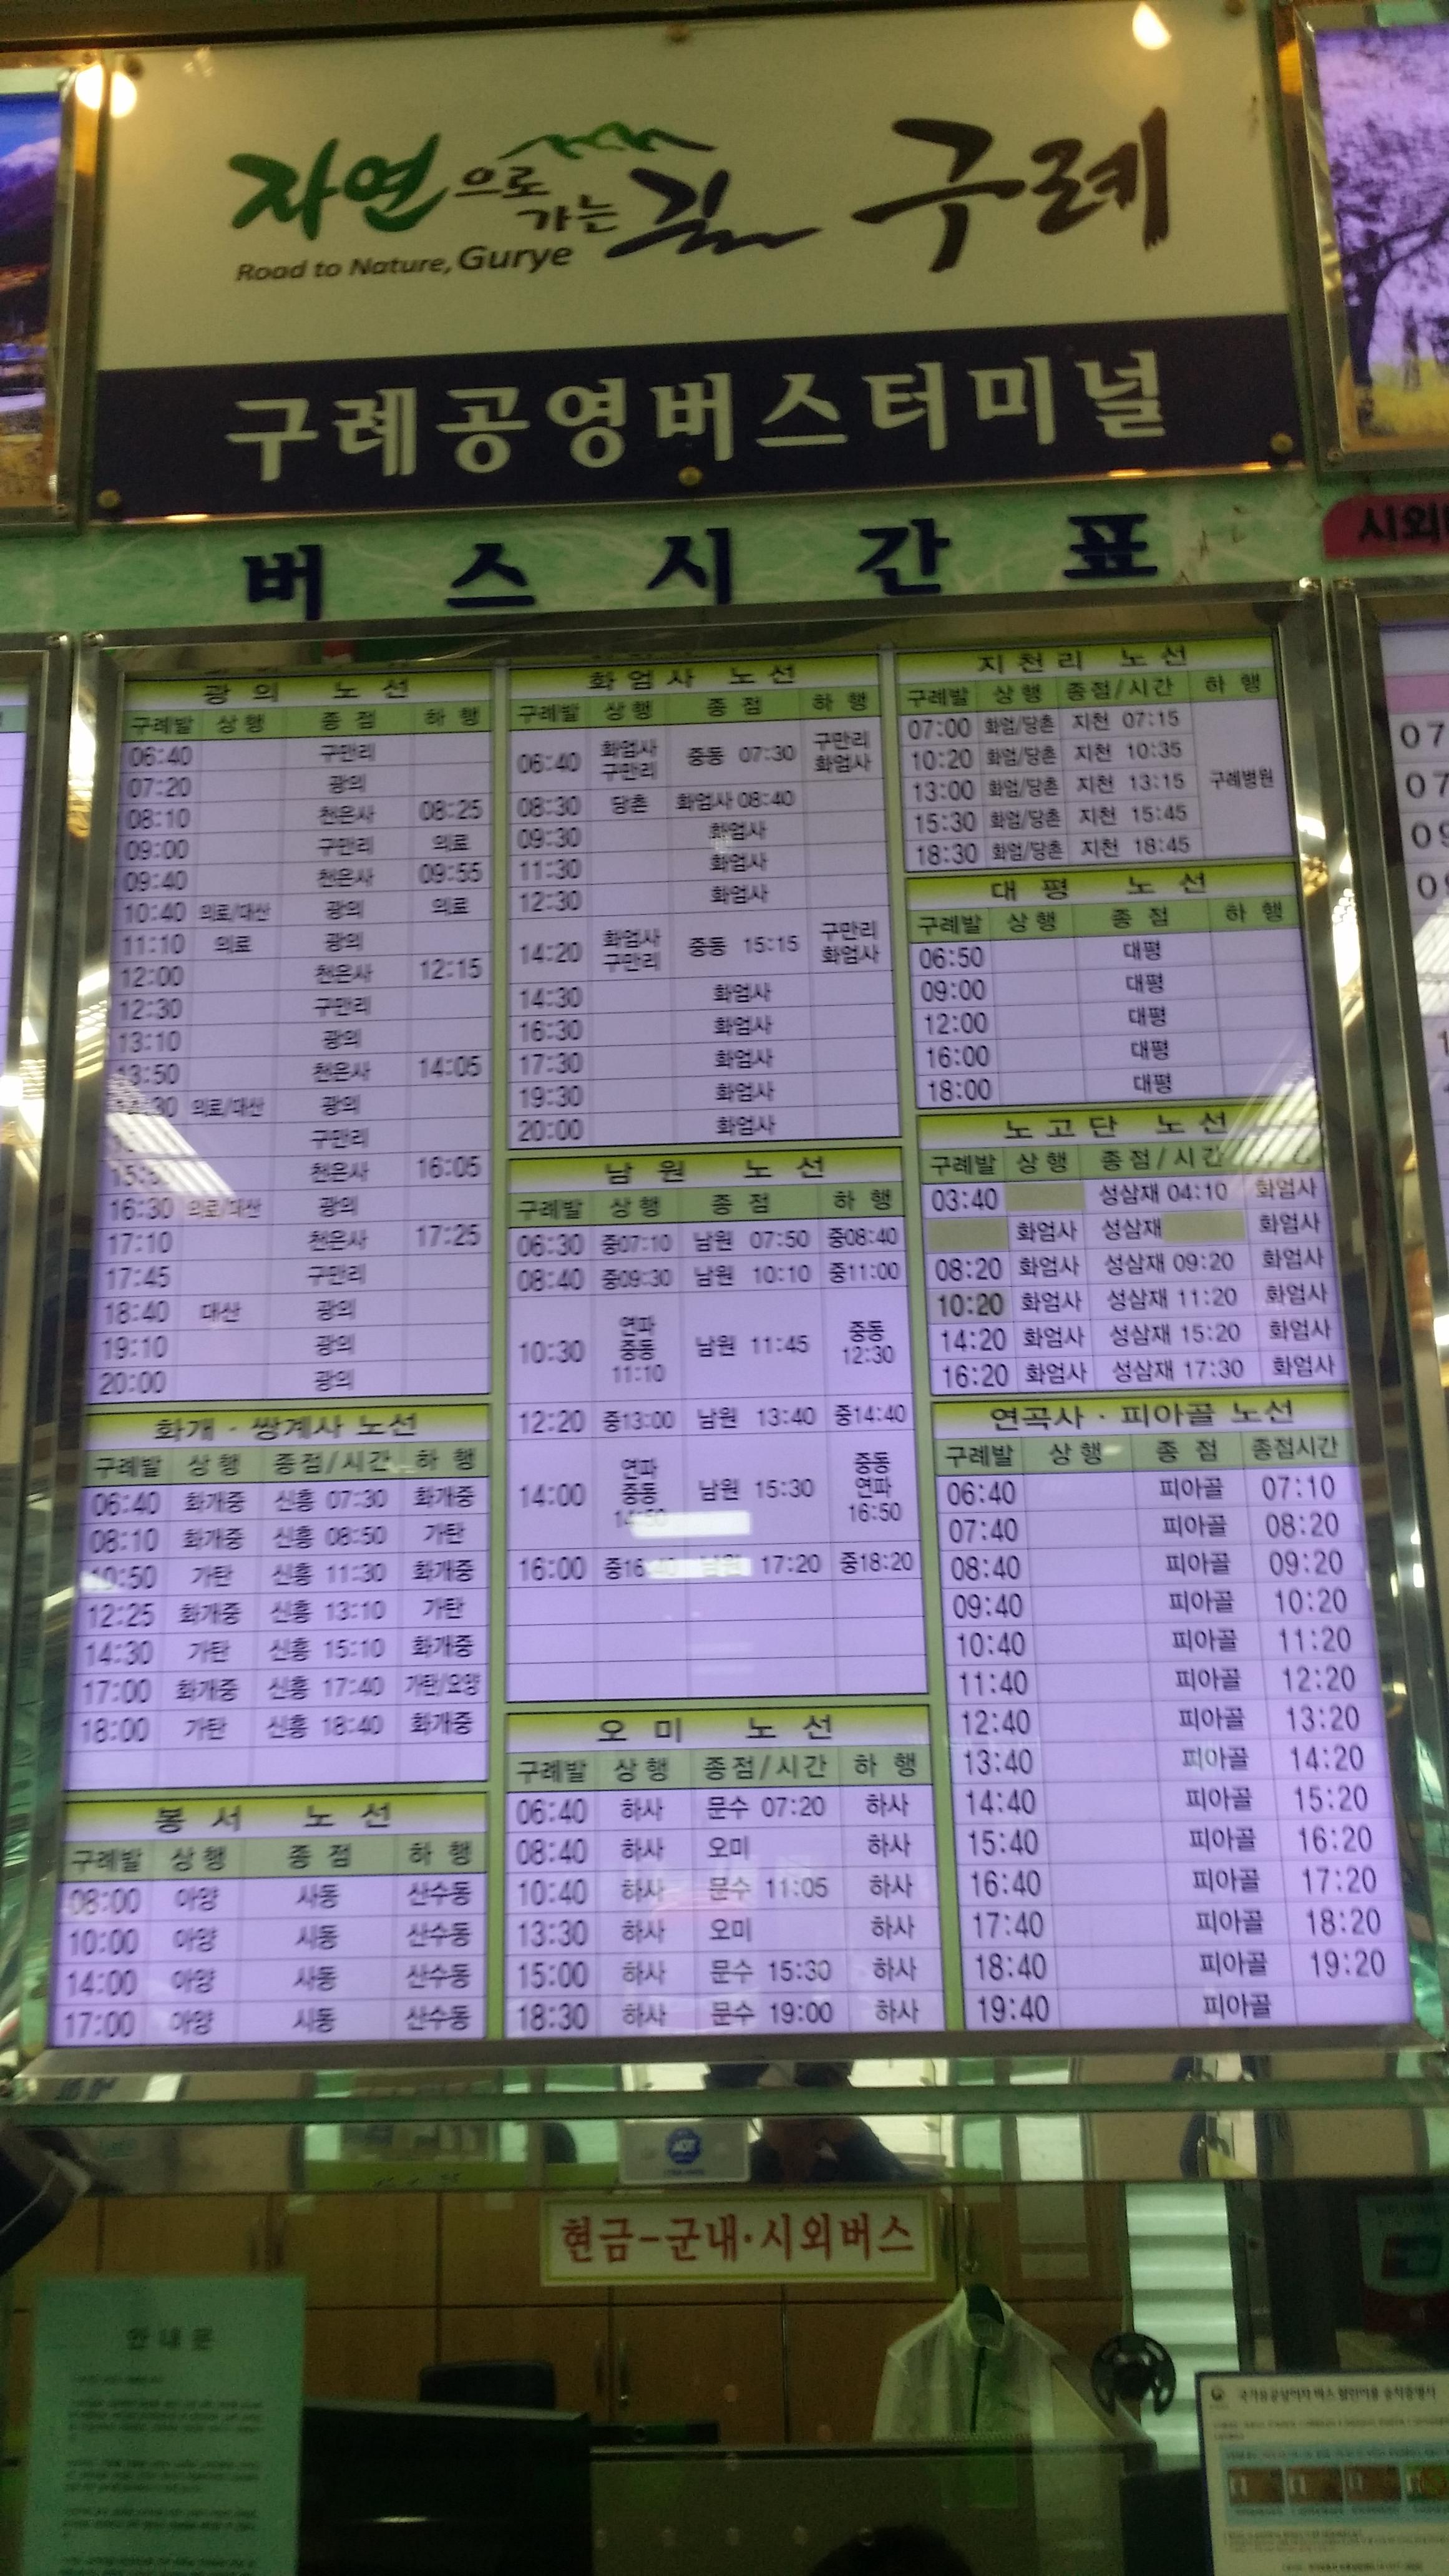 자연으로 가는 길 구례
Road to Nature, Gurye
구례공영버스터미널
버스시간표
시외
광의 노선
구례발 상행 종점 하행
06:40 구만리
07:20 광의
08:10 천은사 08:25
09:00 구만리 의료
09:40 천은사 09:55
10:40 의료/대산 광의 의료
11:10 의료 광의
12:00 천은사 12:15
12:30 구만리
13:10 광의
13:50 천은사 14:05
의료/대산 광의
구만리
천은사 16:05
16:30 의료/대산 광의
17:10 천은사 17:25
17:45 구만리
18:40 대산 광의
19:10 광의
20:00 광의
화개·쌍계사 노선
구례발 상행 종점/시간 하행
06:40 화개중 신흥 07:30 화개중
08:10 화개중 신흥 08:50 가탄
10:50 가탄 신흥 11:30 화개중
12:25 화개중 신흥 13:10 가탄
14:30 가탄 신흥 15:10 화개중
17:00 화개중 신흥 17:40 가탄/요양
18:00 가탄 신흥 18:40 화개중
봉서 노선
구례발 상행 종점 하행
08:00 아양 사동 산수동
10:00 아양 사동 산수동
14:00 아양 사동 산수동
17:00 아양 사동 산수동
화엄사 노선
구례발 상행 종점 하행
06:40 화엄사 구만리 중동 07:30 구만리 화엄사
08:30 당촌 화엄사 08:40
09:30 화엄사
11:30 화엄사
12:30 화엄사
14:20 화엄사 구만리 중동 15:15 구만리 화엄사
14:30 화엄사
16:30 화엄사
17:30 화엄사
19:30 화엄사
20:00 화엄사
남원 노선
구례발 상행 종점 하행
06:30 중07:10 남원 07:50 중08:40
08:40 중09:30 남원 10:10 중11:00
10:30 연파 중동 11:10 남원 11:45 중동 12:30
12:20 중13:00 남원 13:40 중14:40
14:00 연파 중동 남원 15:30 중동 연파 16:50
16:00 중16:40 남원 17:20 중18:20
오미 노선
구례발 상행 종점/시간 하행
06:40 하사 문수 07:20 하사
08:40 하사 오미 하사
10:40 하사 문수 11:05 하사
13:30 하사 오미 하사
15:00 하사 문수 15:30 하사
18:30 하사 문수 19:00 하사
지천리 노선
구례발 상행 종점/시간 하행
07:00 화엄/당촌 지천 07:15
10:20 화엄/당촌 지천 10:35
13:00 화엄/당촌 지천 13:15 구례병원
15:30 화엄/당촌 지천 15:45
18:30 화엄/당촌 지천 18:45
대평 노선
구례발 상행 종점 하행
06:50 대평
09:00 대평
12:00 대평
16:00 대평
18:00 대평
노고단 노선
구례발 상행 종점/시간
03:40 성삼재 04:10 화엄사
화엄사 성삼재 화엄사
08:20 화엄사 성삼재 09:20 화엄사
10:20 화엄사 성삼재 11:20 화엄사
14:20 화엄사 성삼재 15:20 화엄사
16:20 화엄사 성삼재 17:30 화엄사
연곡사·피아골 노선
구례발 상행 종점 종점시간
06:40 피아골 07:10
07:40 피아골 08:20
08:40 피아골 09:20
09:40 피아골 10:20
10:40 피아골 11:20
11:40 피아골 12:20
12:40 피아골 13:20
13:40 피아골 14:20
14:40 피아골 15:20
15:40 피아골 16:20
16:40 피아골 17:20
17:40 피아골 18:20
18:40 피아골 19:20
19:40 피아골
ADT
현금-군내·시외버스
안내문